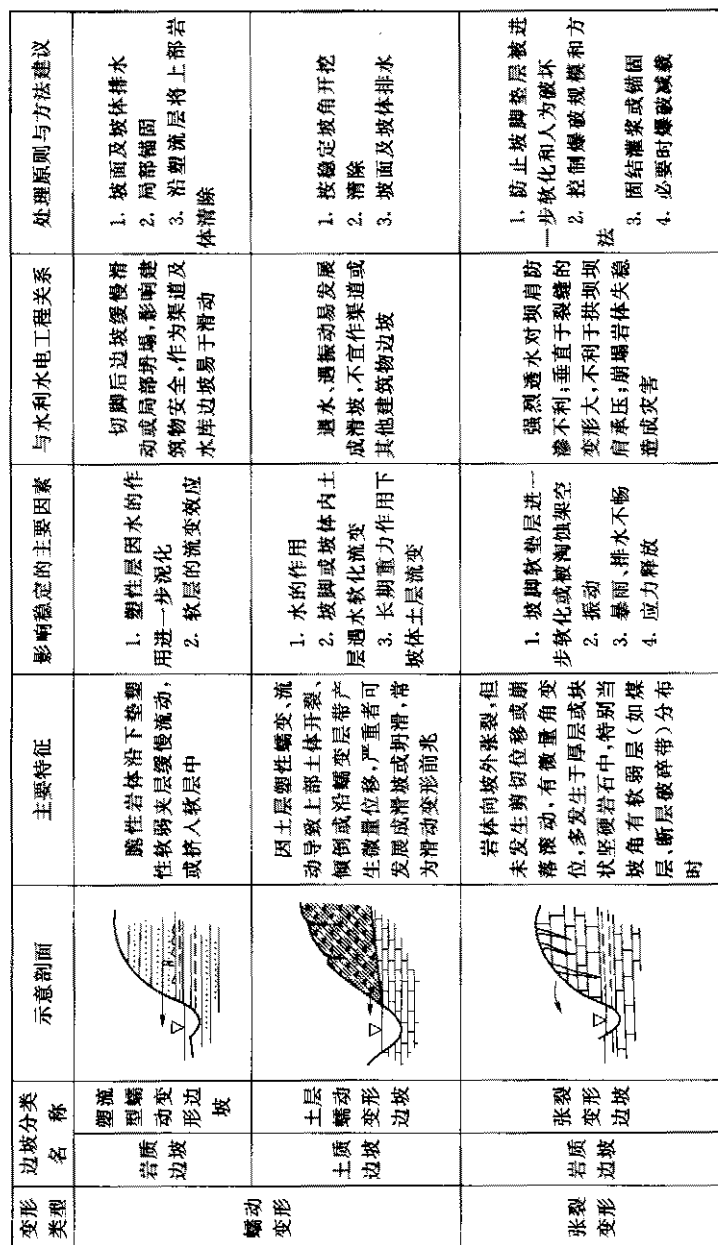 变形
类型
边坡分类
名 称
示意剖面
主要特征
影响稳定的主要因素
与水利水电工程关系
处理原则与方法建议
蠕动
变形
岩质
边坡
塑流
型蠕
动变
形边
坡
脆性岩体沿下垫塑
性软弱夹层缓慢流动，
或挤入软层中
1. 塑性层因水的作
用进一步泥化
2. 软层的流变效应
切脚后边坡缓慢滑
动或局部坍塌，影响建
筑物安全，作为渠道及
水库边坡易于滑动
1. 坡面及坡体排水
2. 局部锚固
3. 沿塑流层将上部岩
体清除
土质
边坡
土层
蠕动
变形
边坡
因土层塑性蠕变、流
动导致上部土体开裂、
倾倒或沿蠕变层带产
生微量位移，严重者可
发展成滑坡或坍滑，常
为滑动变形前兆
1. 水的作用
2. 坡脚或坡体内土
层遇水软化流变
3. 长期重力作用下
坡体土层流变
遇水、遇振动易发展
成滑坡，不宜作渠道或
其他建筑物边坡
1. 按稳定坡角开挖
2. 清除
3. 坡面及坡体排水
张裂
变形
岩质
边坡
张裂
变形
边坡
岩体向坡外张裂，但
未发生剪切位移或崩
落滚动，有微量角变
位，多发生于厚层或块
状坚硬岩石中，特别当
坡角有软弱层（如煤
层、断层破碎带）分布
时
1. 坡脚软垫层进一
步软化或被淘蚀架空
2. 振动
3. 暴雨、排水不畅
4. 应力释放
强烈透水对坝肩防
渗不利；垂直于裂缝的
变形大，不利于拱坝坝
肩承压；崩塌岩体失稳
造成灾害
1. 防止坡脚垫层被进
一步软化和人为破坏
2. 控制爆破规模和方
法
3. 固结灌浆或锚固
4. 必要时爆破减载